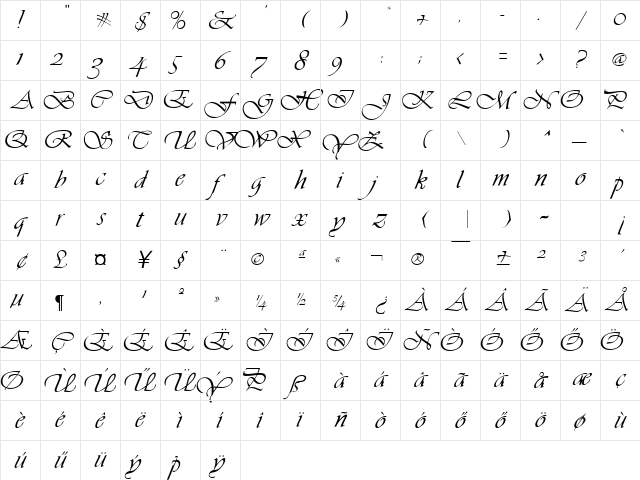 ! " # $ % & ' ( ) * + , - . / 0
1 2 3 4 5 6 7 8 9 : ; < = > ? @
A B C D E F G H I J K L M N O P
Q R S T U V W X Y Z ( \ ) ^ _ `
a b c d e f g h i j k l m n o p
q r s t u v w x y z ( | ) ~ ¡
¢ £ ¤ ¥ § ¨ © ª « ¬ ® ¯ ° ± 2 3 ´
µ ¶ , ¹ º » ¼ ½ ¾ ¿ À Á Â Ã Ä Å
Æ Ç È É Ê Ë Ì Í Î Ï Ñ Ò Ó Ô Õ Ö
Ø Ù Ú Û Ü Ý Þ ß à á â ã ä å æ ç
è é ê ë ì í î ï ñ ò ó ô õ ö ø ù
ú û ü ý þ ÿ